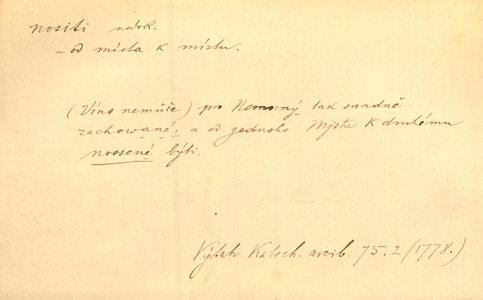 nositi nedok.
– od místa k místu.
(Víno nemůže) pro Nemocný tak snadně
zachowané, a od gednoho Mjsta k druhému
nossené býti.
Výtah Katech. arcib. 75.2 (1778.)